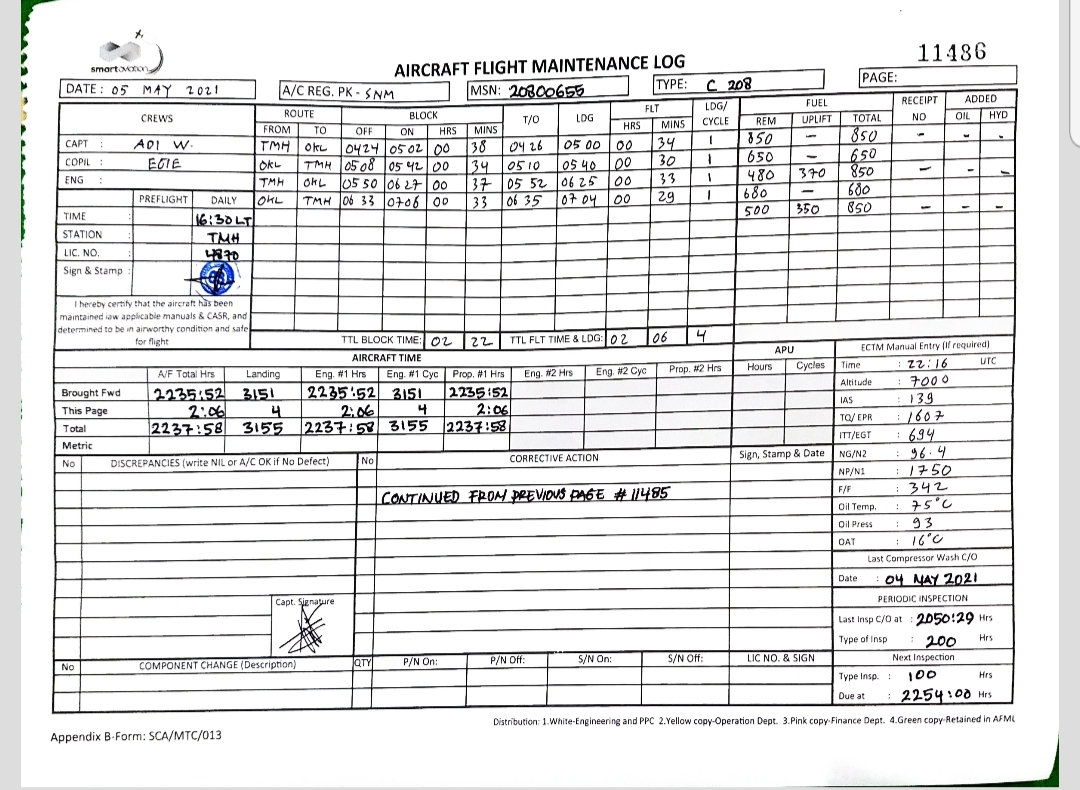 smartaviation
11486
AIRCRAFT FLIGHT MAINTENANCE LOG
DATE: 05 MAY 2021 A/C REG. PK - SNM MSN: 20800655 TYPE: C 208 PAGE:
CREWS ROUTE BLOCK T/O LDG FLT LDG/ CYCLE FUEL RECEIPT NO ADDED
FROM TO OFF ON HRS MINS HRS MINS REM UPLIFT TOTAL OIL HYD
CAPT : ADI W. TMH OKL 0424 0502 00 38 0426 0500 00 34 1 850 — 850 - - -
COPIL : OKL TMH 0508 0542 00 34 0510 0540 00 30 1 650 — 650
ENG : TMH OKL 0550 0627 00 37 0552 0625 00 33 1 480 370 850 — - -
PREFLIGHT DAILY OKL TMH 0633 0706 00 33 0635 0704 00 29 1 680 — 680
TIME : 16:30 LT 500 350 850 - - -
STATION : TMH
LIC. NO. : 4870
Sign & Stamp :
I hereby certify that the aircraft has been
maintained iaw applicable manuals & CASR, and
determined to be in airworthy condition and safe
for flight
TTL BLOCK TIME: 02 22 TTL FLT TIME & LDG: 02 06 4
AIRCRAFT TIME APU ECTM Manual Entry (If required)
A/F Total Hrs Landing Eng. #1 Hrs Eng. #1 Cyc Prop. #1 Hrs Eng. #2 Hrs Eng. #2 Cyc Prop. #2 Hrs Hours Cycles Time : 22:16 UTC
Brought Fwd 2235:52 3151 2235:52 3151 2235:52 Altitude : 7000
This Page 2:06 4 2:06 4 2:06 IAS : 139
Total 2237:58 3155 2237:58 3155 2237:58 TQ/ EPR : 1607
Metric ITT/EGT : 694
No DISCREPANCIES (write NIL or A/C OK if No Defect) No CORRECTIVE ACTION Sign, Stamp & Date NG/N2 : 96.4
NP/N1 : 1750
CONTINUED FROM PREVIOUS PAGE # 11485 F/F : 342
Oil Temp. : 75°C
Oil Press : 93
OAT : 16°C
Last Compressor Wash C/O
Date : 04 MAY 2021
Capt. Signature PERIODIC INSPECTION
Last Insp C/O at : 2050:29 Hrs
Type of Insp : 200 Hrs
No COMPONENT CHANGE (Description) QTY P/N On: P/N Off: S/N On: S/N Off: LIC NO. & SIGN Next Inspection
Type Insp. : 100 Hrs
Due at : 2254:00 Hrs
Distribution: 1.White-Engineering and PPC 2.Yellow copy-Operation Dept. 3.Pink copy-Finance Dept. 4.Green copy-Retained in AFML
Appendix B-Form: SCA/MTC/013